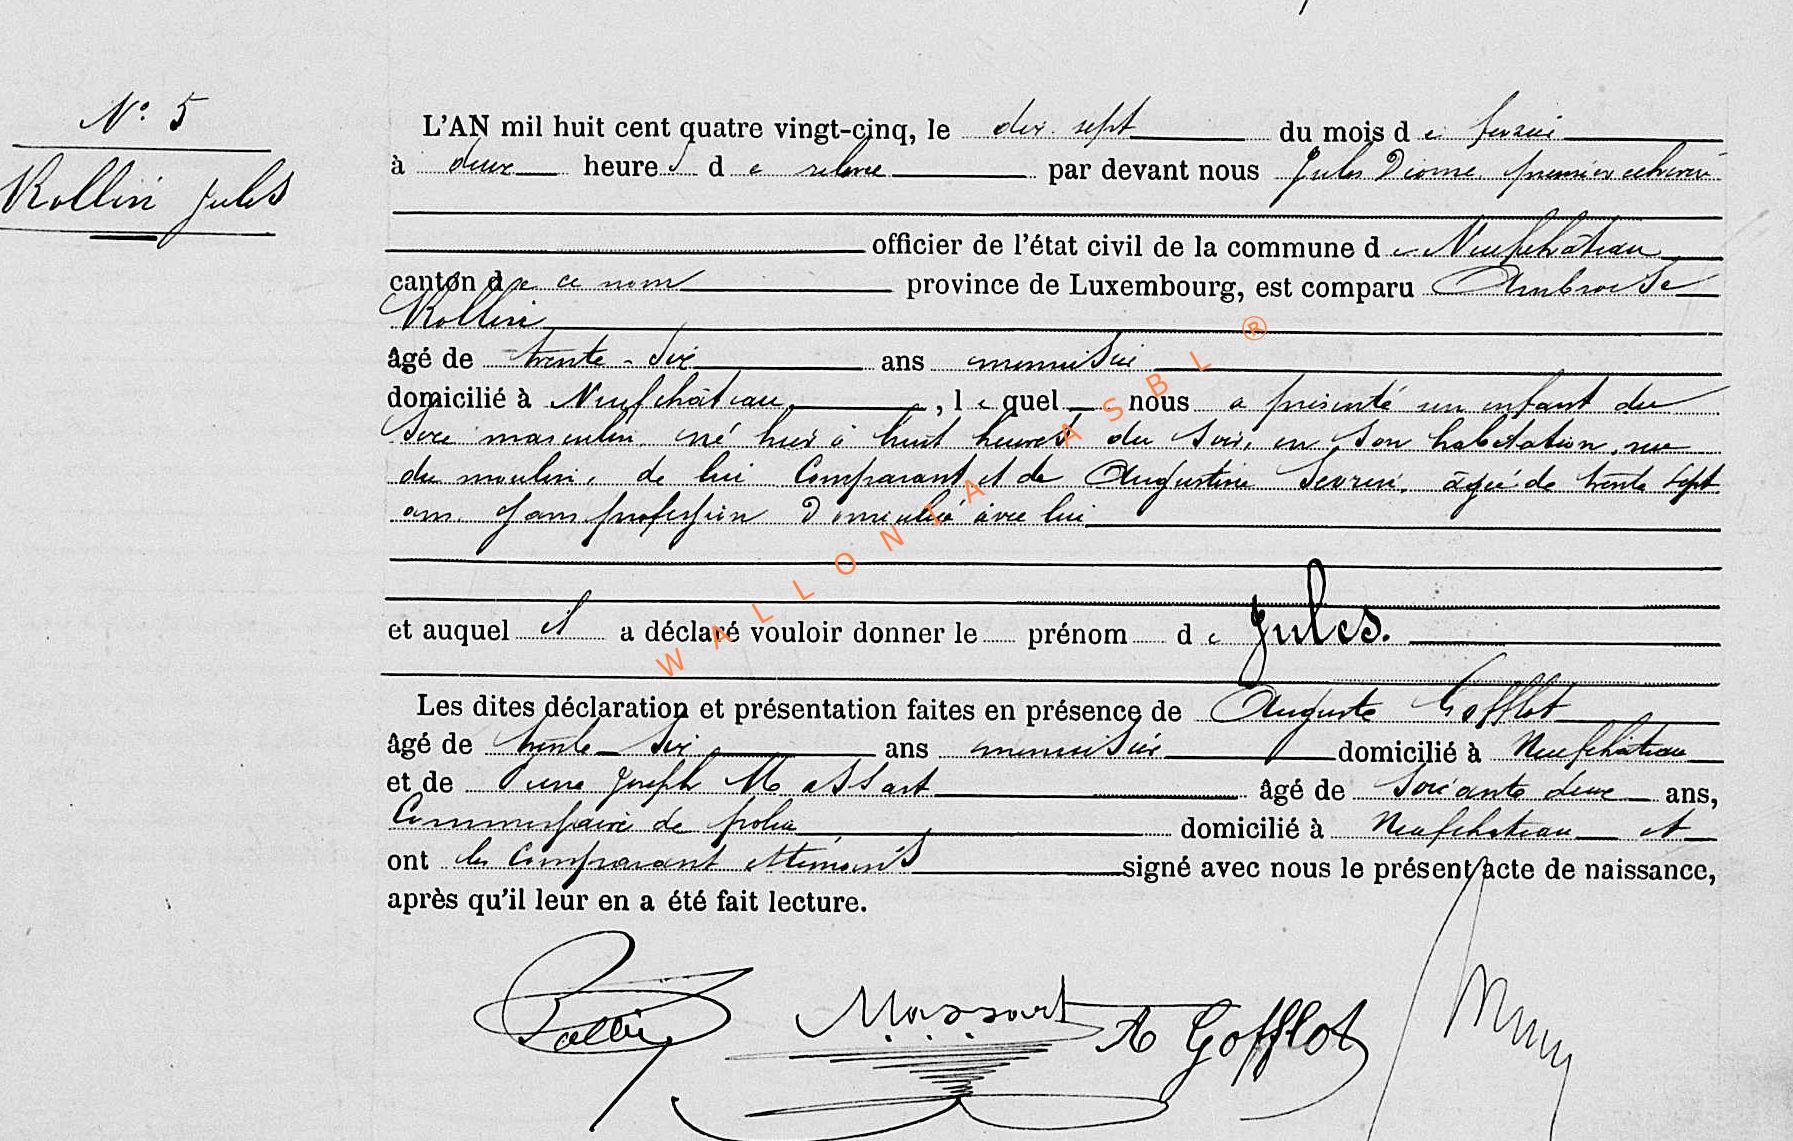 N° 5
Rollin Jules
L'AN mil huit cent quatre vingt-cinq, le dix sept du mois de fevrier
à deux heures de relevée par devant nous Jules premier échevin
officier de l'état civil de la commune de Neufchâteau
canton de ce nom province de Luxembourg, est comparu Ambroise
Rollin
âgé de trente-six ans menuisier
domicilié à Neufchâteau, lequel nous a présenté un enfant du
sexe masculin né hier à huit heures du soir, en son habitation, rue
du moulin, de lui Comparant et de Augustine âgée de trente sept
ans sans profession domiciliée avec lui
et auquel il a déclaré vouloir donner le prénom de Jules.
Les dites déclaration et présentation faites en présence de Auguste Gofflot
âgé de trente-six ans menuisier domicilié à Neufchâteau
et de Pierre Joseph Massart âgé de soixante deux ans,
Commissaire de police domicilié à Neufchateau et
ont les Comparant et témoins signé avec nous le présent acte de naissance,
après qu'il leur en a été fait lecture.
Rollin Massart A Gofflot
WALLONIA ASBL ®